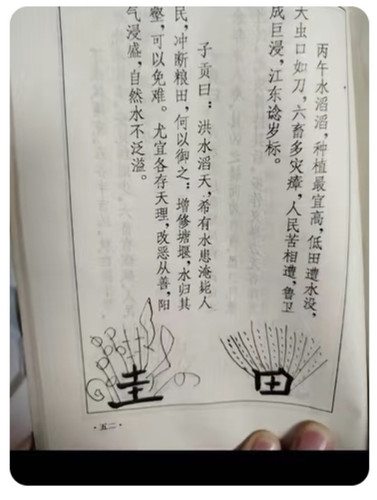 丙午水滔滔，种植最宜高，低田遭水没，
大虫口如刀，六畜多灾瘴，人民苦相遭，鲁卫
成巨浸，江东谂岁标。
子贡曰：洪水滔天，希有水患淹毙人
民，冲断粮田，何以御之：增修塘堰，水归其
壑，可以免难。尤宜各存天理，改恶从善，阳
气浸盛，自然水不泛溢。
田
圭
·五二·